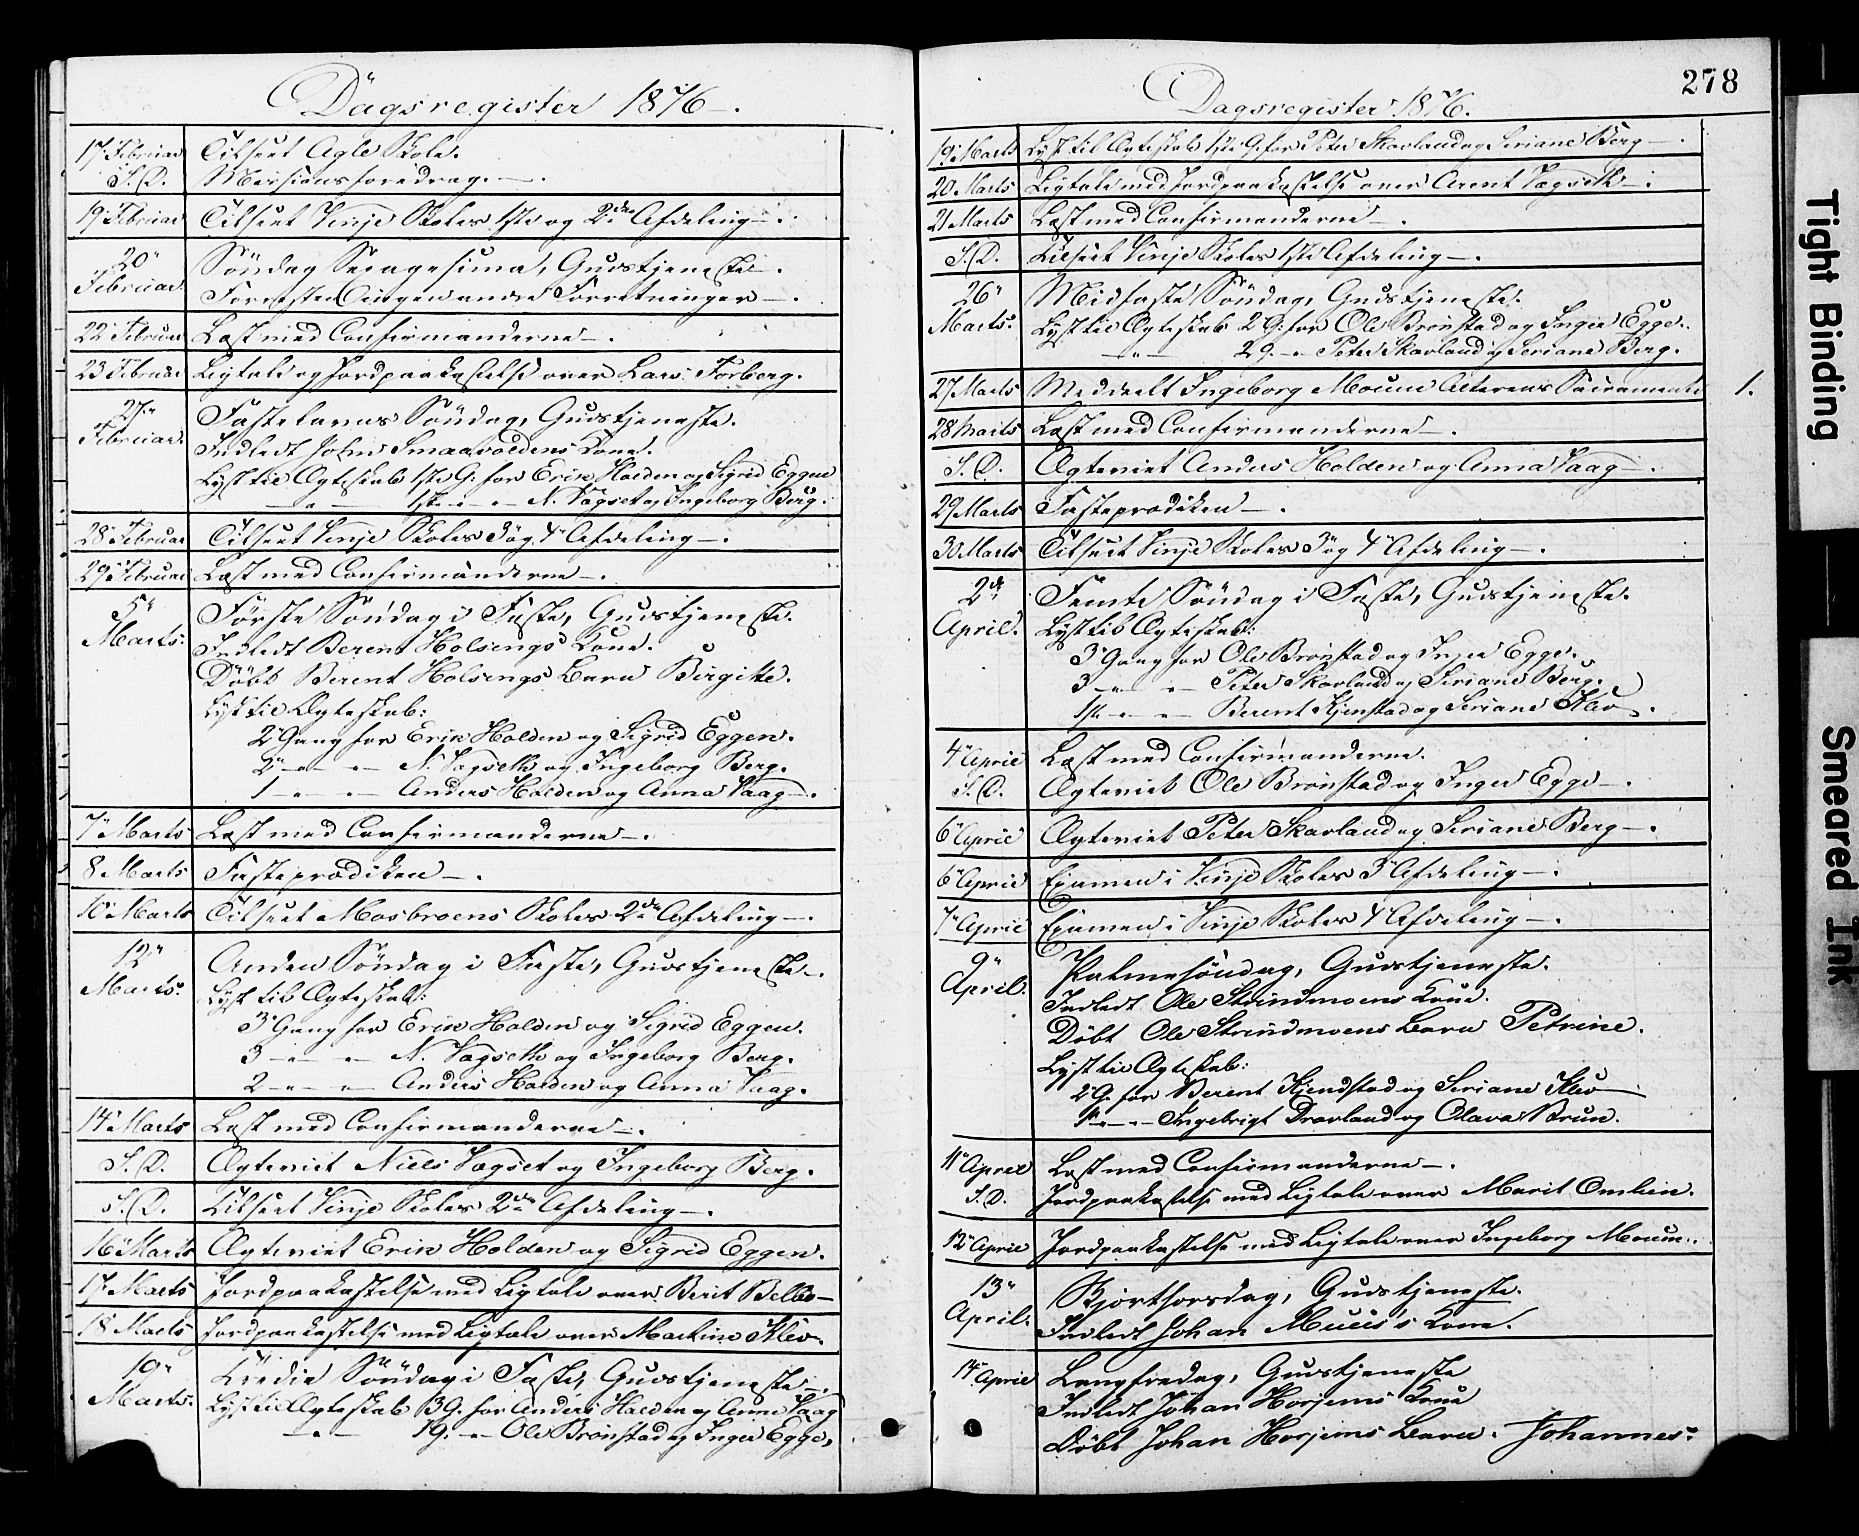 Dagsregister 1876.
17 Februar Tilseet Agle Skole.
S. D. Missionsforedrag.
19 Februar Tilseet Vinje Skoles 1ste og 2den Afdeling.
20 Februar Söndag Sexagesima, Gudstjeneste.
Forresten Ingen andre Forretninger.
22 Februar Læst med Confirmanderne.
23 Februar Ligtale og Jordpaakastelse over Lars Forberg.
27 Februar. Fastelavns Söndag, Gudstjeneste.
Indledt John Smaavoldens Kone.
Lyst til Ægteskab 1ste G. for Erik Holden og Sigrid Eggen
— " — 1ste " " N. Vagset og Ingeborg Berg.
28 Februar Tilseet Vinje Skoles 3 og 4 Afdeling.
29 Februar Læst med Confirmanderne.
5 Marts. Første Söndag i Faste, Gudstjeneste.
Indledt Berent Holsings Kone.
Döbt Berent Holsings Barn Birgitte.
Lyst til Ægteskab:
2 Gang for Erik Holden og Sigrid Eggen.
2 " " N. Vagseth og Ingeborg Berg.
1 " " Anders Holden og Anna Vaag.
7 Marts Læst med Confirmanderne.
8 Marts Fasteprædiken.
10 Marts Tilseet Mosbroens Skoles 2den Afdeling.
12 Marts. Anden Söndag i Faste, Gudstjeneste.
Lyst til Ægteskab:
3 Gang for Erik Holden og Sigrid Eggen.
3 " " N. Vagseth og Ingeborg Berg.
2 " " Anders Holden og Anna Vaag.
14 Marts Læst med Confirmanderne.
S. D. Ægteviet Niels Vagset og Ingeborg Berg.
S. D. Tilseet Vinje Skoles 2den Afdeling.
16 Marts Ægteviet Erik Holden og Sigrid Eggen.
17 Marts Jordpaakastelse med Ligtale over Berit Belbo
18 Marts Jordpaakastelse med Ligtale over Martine Klev.
19 Marts. Tredie Söndag i Faste, Gudstjeneste.
Lyst til Ægteskab 3 G. for Anders Holden og Anna Vaag
— " — 1 G. " Ole Brønstad og Inger Egge,
278
Dagsregister 1876.
19 Marts Lyst til Ægteskab 1ste G. for Peter Skavland og Seriane Berg.
20 Marts Ligtale med Jordpaakastelse over Arent Vagseth.
21 Marts Læst med Confirmanderne.
S. D. Tilseet Vinje Skoles 1ste Afdeling.
26 Marts. Midfaste Söndag, Gudstjeneste.
Lyst til Ægteskab 2 G. for Ole Brønstad og Inger Egge.
— " — 2 G. " Peter Skavland og Seriane Berg.
27 Marts Meddeelt Ingeborg Mouum Alterens Sacramente 1.
28 Marts Læst med Confirmanderne.
S. D. Ægteviet Anders Holden og Anna Vaag.
29 Marts Fasteprædiken.
30 Marts Tilseet Vinje Skoles 3 og 4 Afdeling.
2 April. Femte Söndag i Faste, Gudstjeneste.
Lyst til Ægteskab:
3 Gang for Ole Brønstad og Inger Egge.
3 " " Peter Skavland og Seriane Berg.
1ste " " Berent Kjenstad og Seriane Klev.
4 April Læst med Confirmanderne.
S. D. Ægteviet Ole Brønstad og Inger Egge.
6 April Ægteviet Peter Skavland og Seriane Berg.
6 April Examen i Vinje Skoles 3 Afdeling.
7 April Examen i Vinje Skoles 4 Afdeling.
9 April. Palmesöndag, Gudstjeneste.
Indledt Ole Strindmoens Kone.
Döbt Ole Strindmoens Barn Petrine.
Lyst til Ægteskab:
2 G. for Berent Kjendstad og Seriane Klev
1 " " Ingebrigt Dravland og Olava Brun.
11 April Læst med Confirmanderne.
S. D. Jordpaakastelse med Ligtale over Marit Omlien.
12 April Jordpaakastelse med Ligtale over Ingeborg Mouum.
13 April. Skjærthorsdag, Gudstjeneste.
Indledt Johan Kone.
14 April Langfredag, Gudstjeneste
Indledt Johan Horjems Kone
Döbt Johan Horjems Barn Johannes.
Tight Binding
Smeared Ink